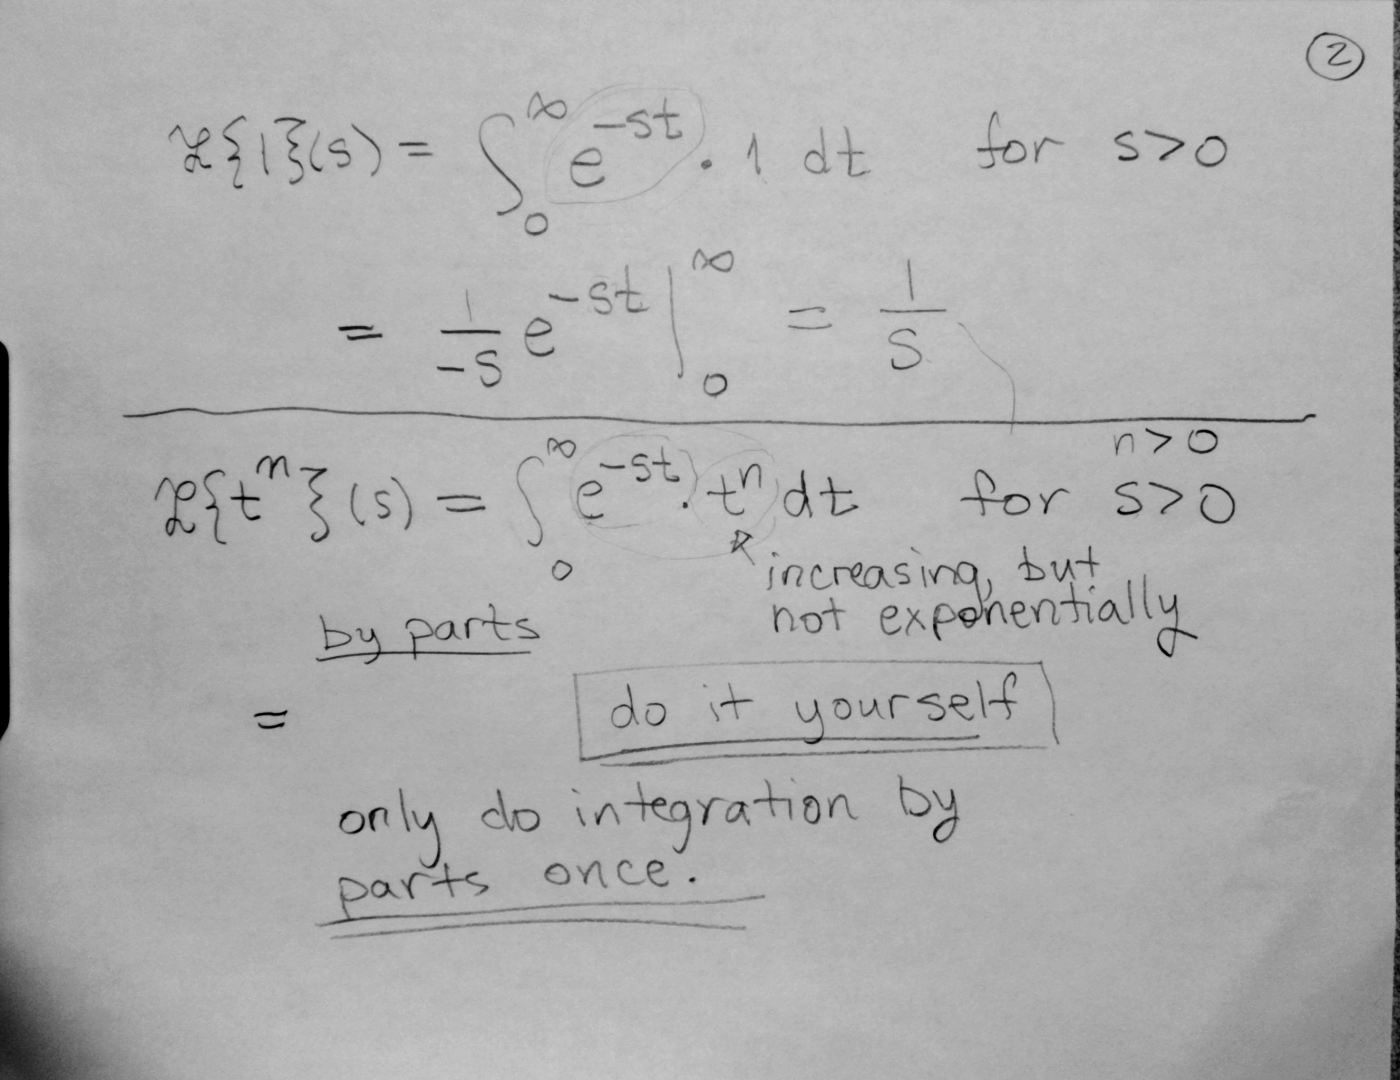 ②
ℒ{1}(s) = ∫₀^∞ e^{-st} · 1 dt for s>0
= 1/-s e^{-st} |₀^∞ = 1/s
n>0
ℒ{t^n}(s) = ∫₀^∞ e^{-st} · t^n dt for s>0
increasing, but
not exponentially
by parts
= do it yourself
only do integration by
parts once.